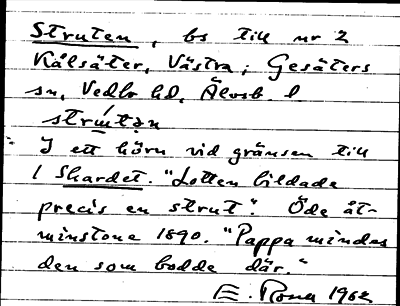 Struten, bs till nr 2
Kålsäter, Västra; Gesäters
sn, Vedbo hd, Älvsb. l
strútən
I ett hörn vid gränsen till
1 Skardet. "Lotten bildade
precis en strut". Öde åt-
minstone 1890. "Pappa mindes
den som bodde där."
E. 1962